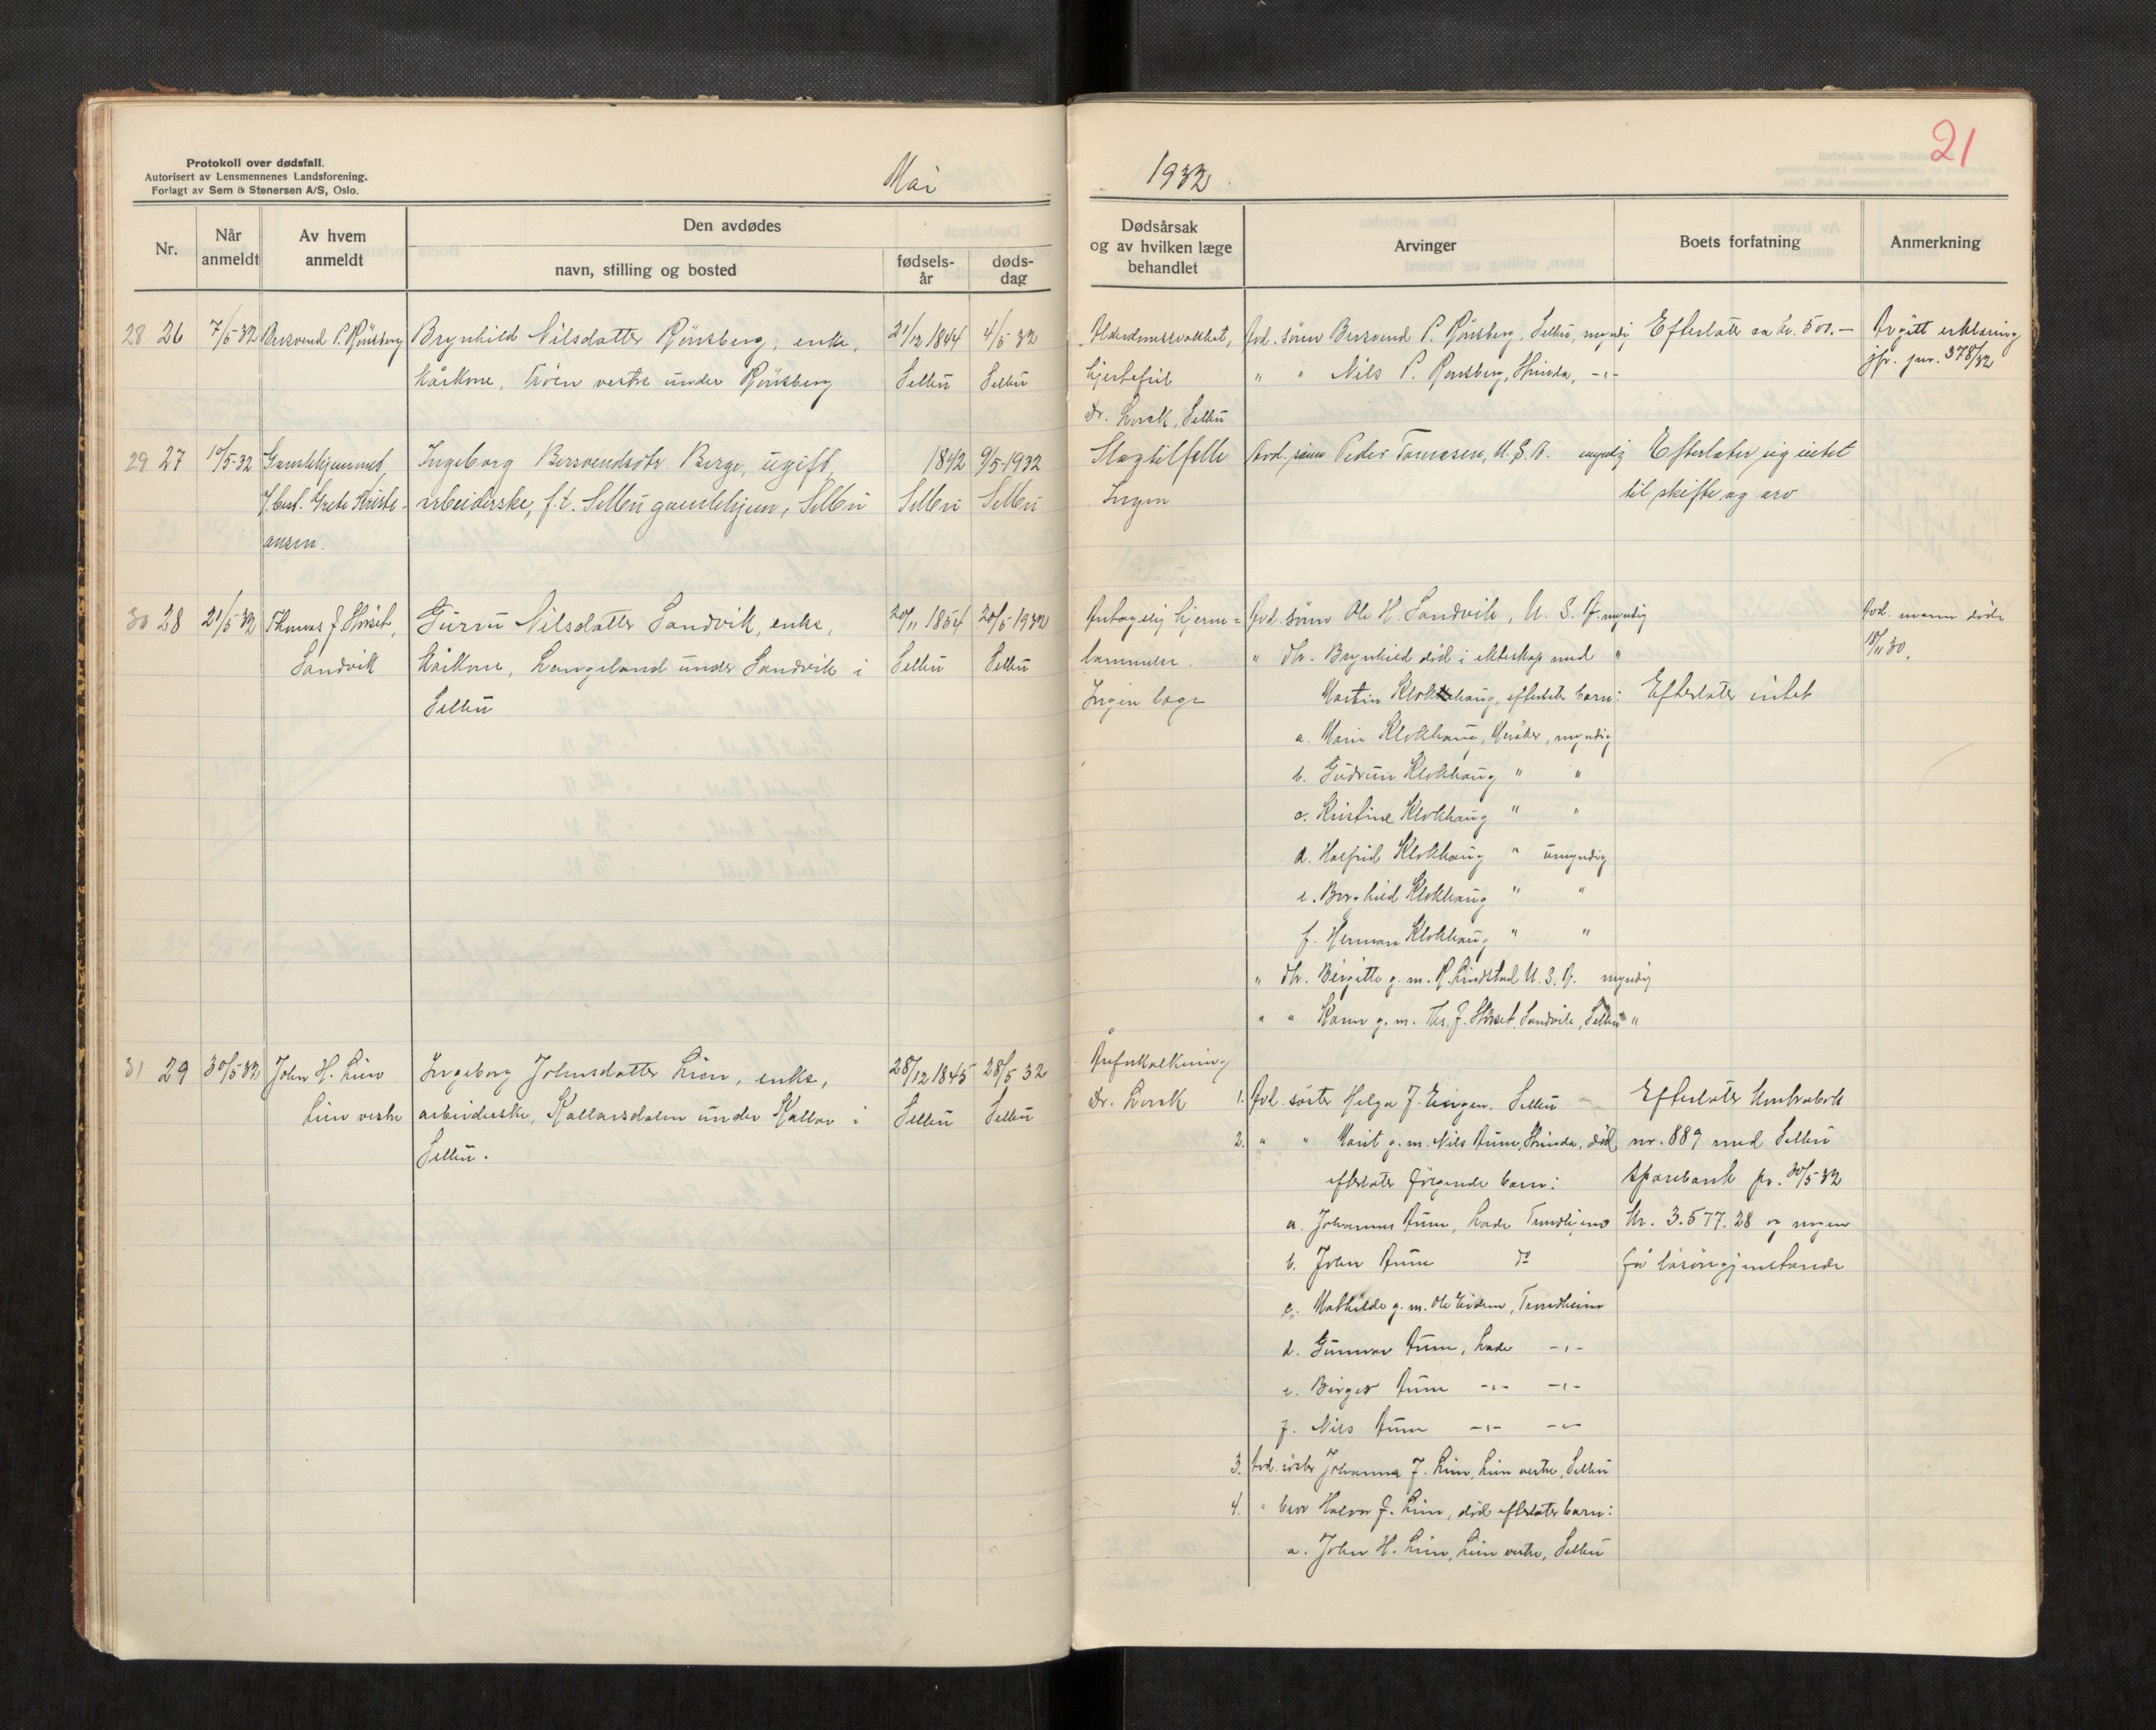 Protokoll over dødsfall.
Autorisert av Lensmennenes Landsforening.
Forlagt av Sem & Stenersen A/S, Oslo.
Mai
Nr.
Når anmeldt
Av hvem anmeldt
Den avdødes
navn, stilling og bosted
fødsels-
år
døds-
dag
28 26 7/5-32 Bersvend P. Rönsberg Brynhild Nilsdatter Rönsberg, enke, 21/12 1844 4/5 32
kårkone, Tröen vestre under Rönsberg Selbu Selbu
29 27 10/5-32 Gamlehjemmet Ingeborg Bersvendsdtr. Berge, ugift, 1842 9/5-1932
v/ best. Grete Kristi- arbeiderske, f.t. Selbu gamlehjem, Selbu Selbu Selbu
ansen.
30 28 21/5-32 Thomas J. Hörset, Guru Nilsdatter Sandvik, enke, 20/11 1854 20/5-1932
Sandvik kårkone, Langeland under Sandvik i Selbu Selbu
Selbu
31 29 30/5-32 John H. Lien Ingeborg Johnsdatter Lien, enke, 28/12 1845 28/5 32
Lien vestre arbeiderske, Kallarsdalen under Kallar i Selbu Selbu
Selbu.
1932
21
Dødsårsak
og av hvilken læge
behandlet
Arvinger
Boets forfatning
Anmerkning
Alderdomssvakhet, Avd. sönn Bersvend P. Rönsberg, Selbu, myndig Efterlater ca kr. 500.— Avgitt erklæring
hjertefeil " " Nils P. Rönsberg, Strinda, -"- jfr. jnr. 378/32
Dr. Lorck, Selbu
Slagtilfelle Avd. sönn Peder Tomasen, U.S.A. myndig Efterlater sig intet
Ingen til skifte og arv
Antagelig hjerne- Avd. sönn Ole H. Sandvik, U.S.A. myndig Avd. mann döde
" Dtr. Brynhild död i ekteskap med " 18/11 30.
Ingen læge Martin Klokkhaug, efterlater barn: Efterlater intet
a. Marie Klokkhaug, Meråker, myndig
b. Gudrun Klokkhaug " "
c. Kristine Klokkhaug " "
d. Halfrid Klokkhaug " umyndig
e. Borghild Klokkhaug " "
f. Herman Klokkhaug " "
" Dtr. Birgitte g. m. P. Lindstad U.S.A. myndig
" " Karen g. m. Ths. J. Hörset, Sandvik, Selbu "
Åreforkalkning
Dr. Lorck 1. Avd. söster Helga J. Engen. Selbu Efterlater kontrabok
2. " " Marit g. m. Nils Aune, Strinda, död nr. 889 med Selbu
efterlater fölgende barn: Sparebank pr. 30/5-32
a. Johannes Aune, Lade Trondhjem kr. 3.577.28 og nogen
b. John Aune Do få lösöregjenstande
c. Mathilde g. m. Ole Eidem, Trondheim
d. Gunnar Aune, Lade -"-
e. Birger Aune -"- -"-
f. Nils Aune -"- -"-
3. Avd. söster Johanna J. Lien, Lien vestre, Selbu
4. " bror Halvor J. Lien, död efterlater barn:
a. John H. Lien, Lien vestre, Selbu